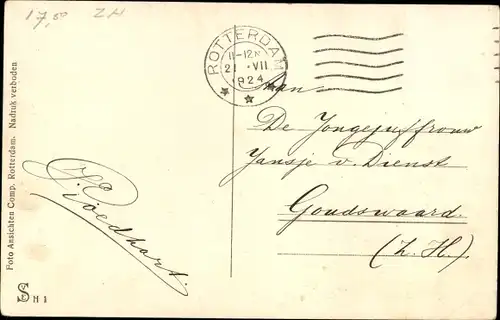 17,50 ZH
ROTTERDAM
11-12V
21 .VII
1924
Aan
De Jongejuffrouw
Jansje v. Dienst
Goudswaard.
(Z.H.)
Goedhart.
Foto Ansichten Comp. Rotterdam. Nadruk verboden
S
H 1